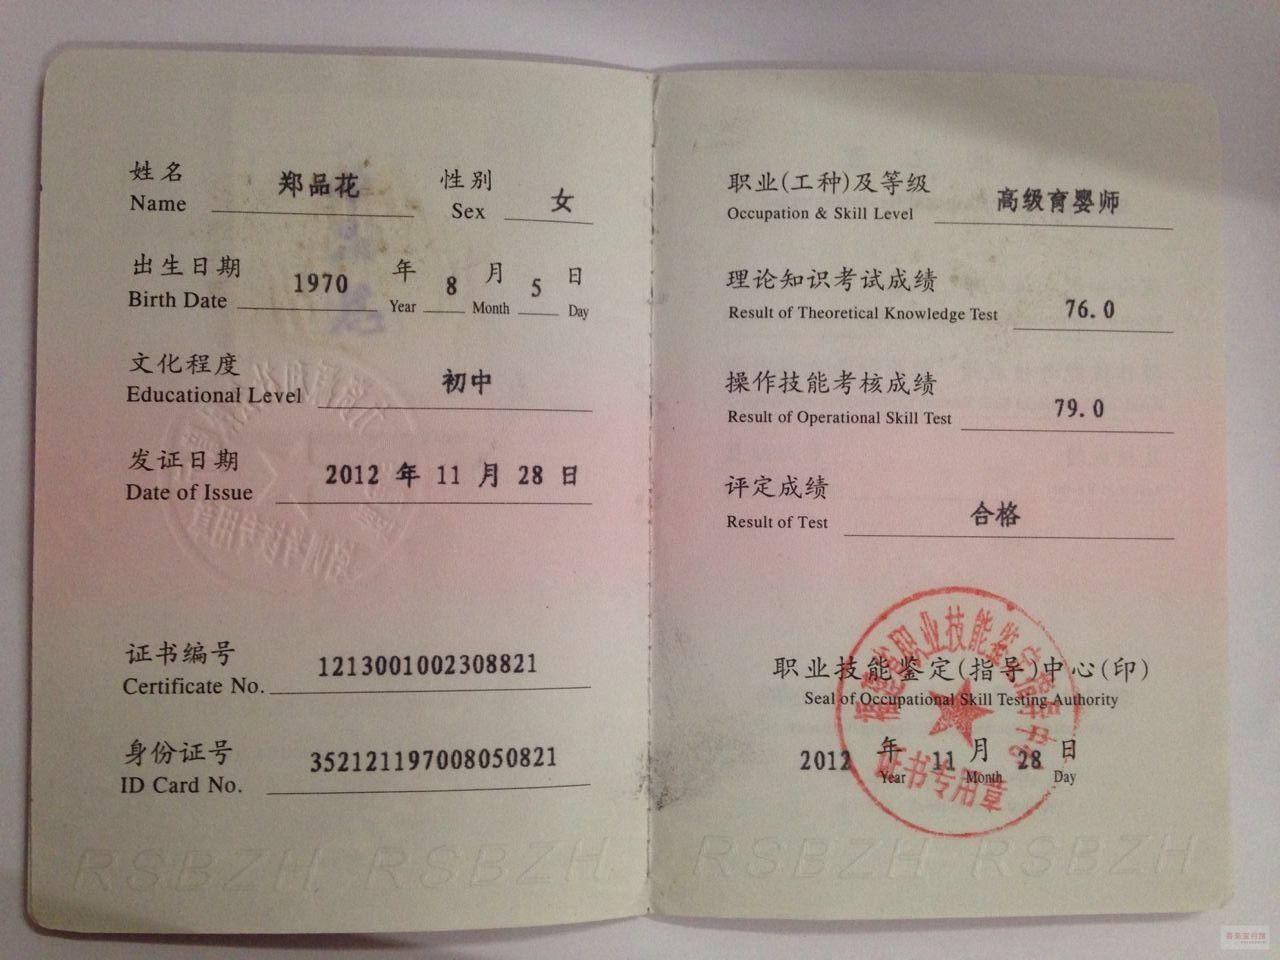 姓名 郑品花 性别 女
Name Sex
出生日期 1970 年 8 月 5 日
Birth Date Year Month Day
文化程度 初中
Educational Level
发证日期 2012 年 11 月 28 日
Date of Issue
证书编号 1213001002308821
Certificate No.
身份证号 352121197008050821
ID Card No.
RSBZH RSBZH
职业(工种)及等级 高级育婴师
Occupation & Skill Level
理论知识考试成绩 76.0
Result of Theoretical Knowledge Test
操作技能考核成绩 79.0
Result of Operational Skill Test
评定成绩 合格
Result of Test
职业技能鉴定(指导)中心(印)
Seal of Occupational Skill Testing Authority
2012 年 11 月 28 日
Year Month Day
福建省职业技能鉴定指导中心
证书专用章
RSBZH RSBZH